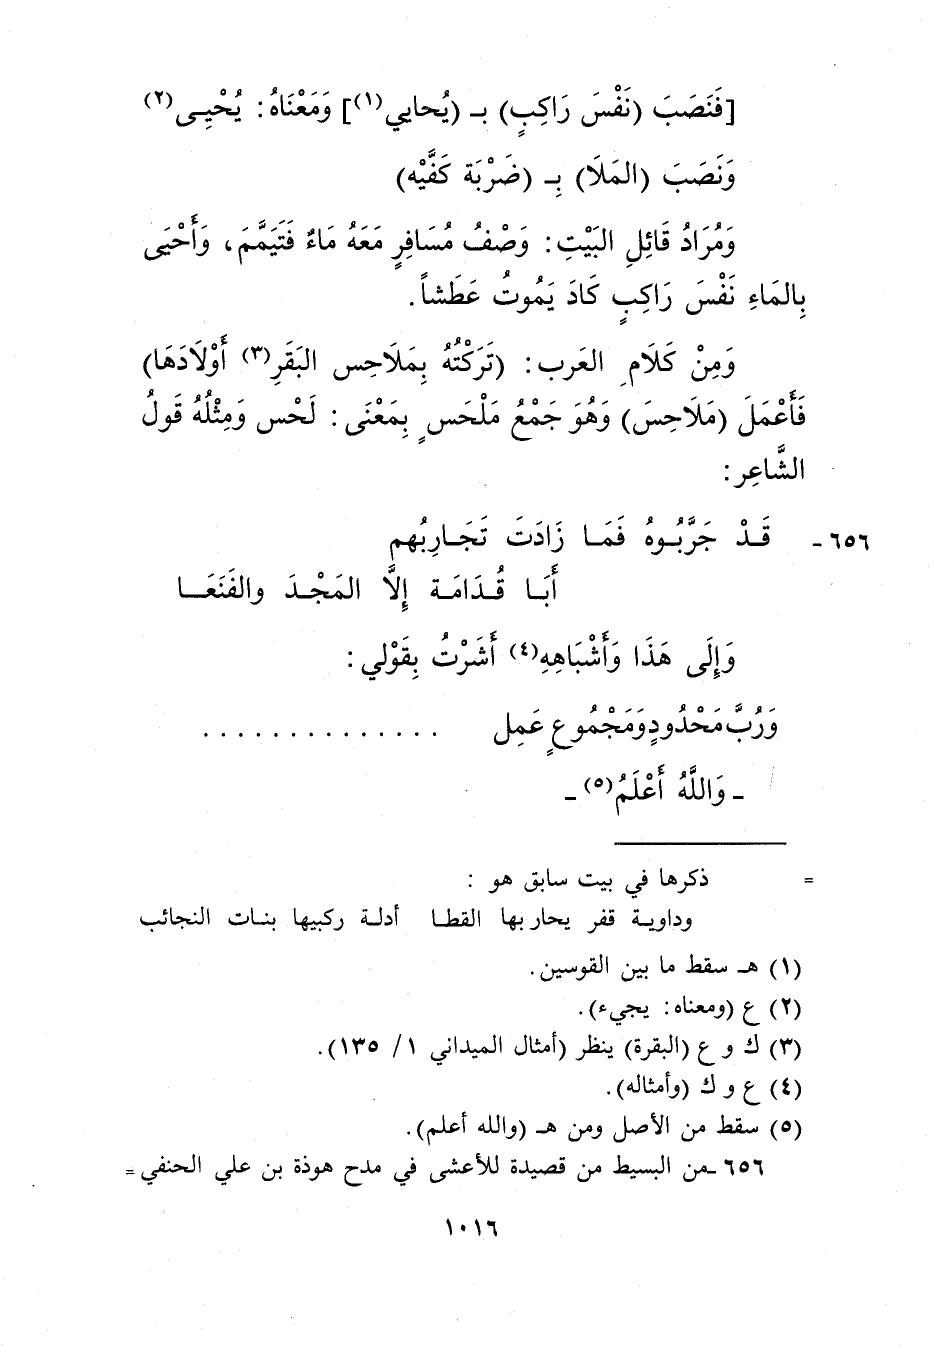 [فَنَصَبَ (نَفْسَ رَاكِبٍ) بـ (يُحايي(١)] وَمَعْنَاهُ: يُحْيِـى(٢)
وَنَصَبَ (المَلَا) بِـ (ضَرْبَة كَفَّيْه)
وَمُرَادُ قَائِلِ البَيْتِ: وَصْفُ مُسَافِرٍ مَعَهُ مَاءٌ فَتَيَمَّمَ، وَأَحْيَى
بِالمَاءِ نَفْسَ رَاكِبٍ كَادَ يَمُوتُ عَطَشاً.
وَمِنْ كَلَامِ العَرب: (تَرَكْتُهُ بِمَلَاحِس البَقَرِ(٣) أَوْلَادَهَا)
فَأَعْمَلَ (مَلَاحِسَ) وَهُوَ جَمْعُ مَلْحَسٍ بِمَعْنَى: لَحْس وَمِثْلُهُ قَولُ
الشَّاعِر:
٦٥٦- قَـدْ جَرَّبُـوهُ فَمَـا زَادَتَ تَجَـارِبُهم
أَبَـا قُـدَامَـة إِلَّا المَجْـدَ والفَنَعَـا
وَإِلَى هَذَا وَأَشْبَاهِهِ(٤) أَشَرْتُ بِقَوْلي:
وَرُبَّ مَحْدُودٍ وَمَجْمُوعٍ عَمِل . . . . . . . . . . . . . .
ـ وَاللَّهُ أَعْلَمُ(٥) ـ
= ذكرها في بيت سابق هو :
وداويـة قفر يحار بها القطـا أدلـة ركبيها بنـات النجائب
(١) هـ سقط ما بين القوسين.
(٢) ع (ومعناه: يجيء).
(٣) ك و ع (البقرة) ينظر (أمثال الميداني ١/ ١٣٥).
(٤) ع و ك (وأمثاله).
(٥) سقط من الأصل ومن هـ (والله أعلم).
٦٥٦ ـ من البسيط من قصيدة للأعشى في مدح هوذة بن علي الحنفي =
١٠١٦